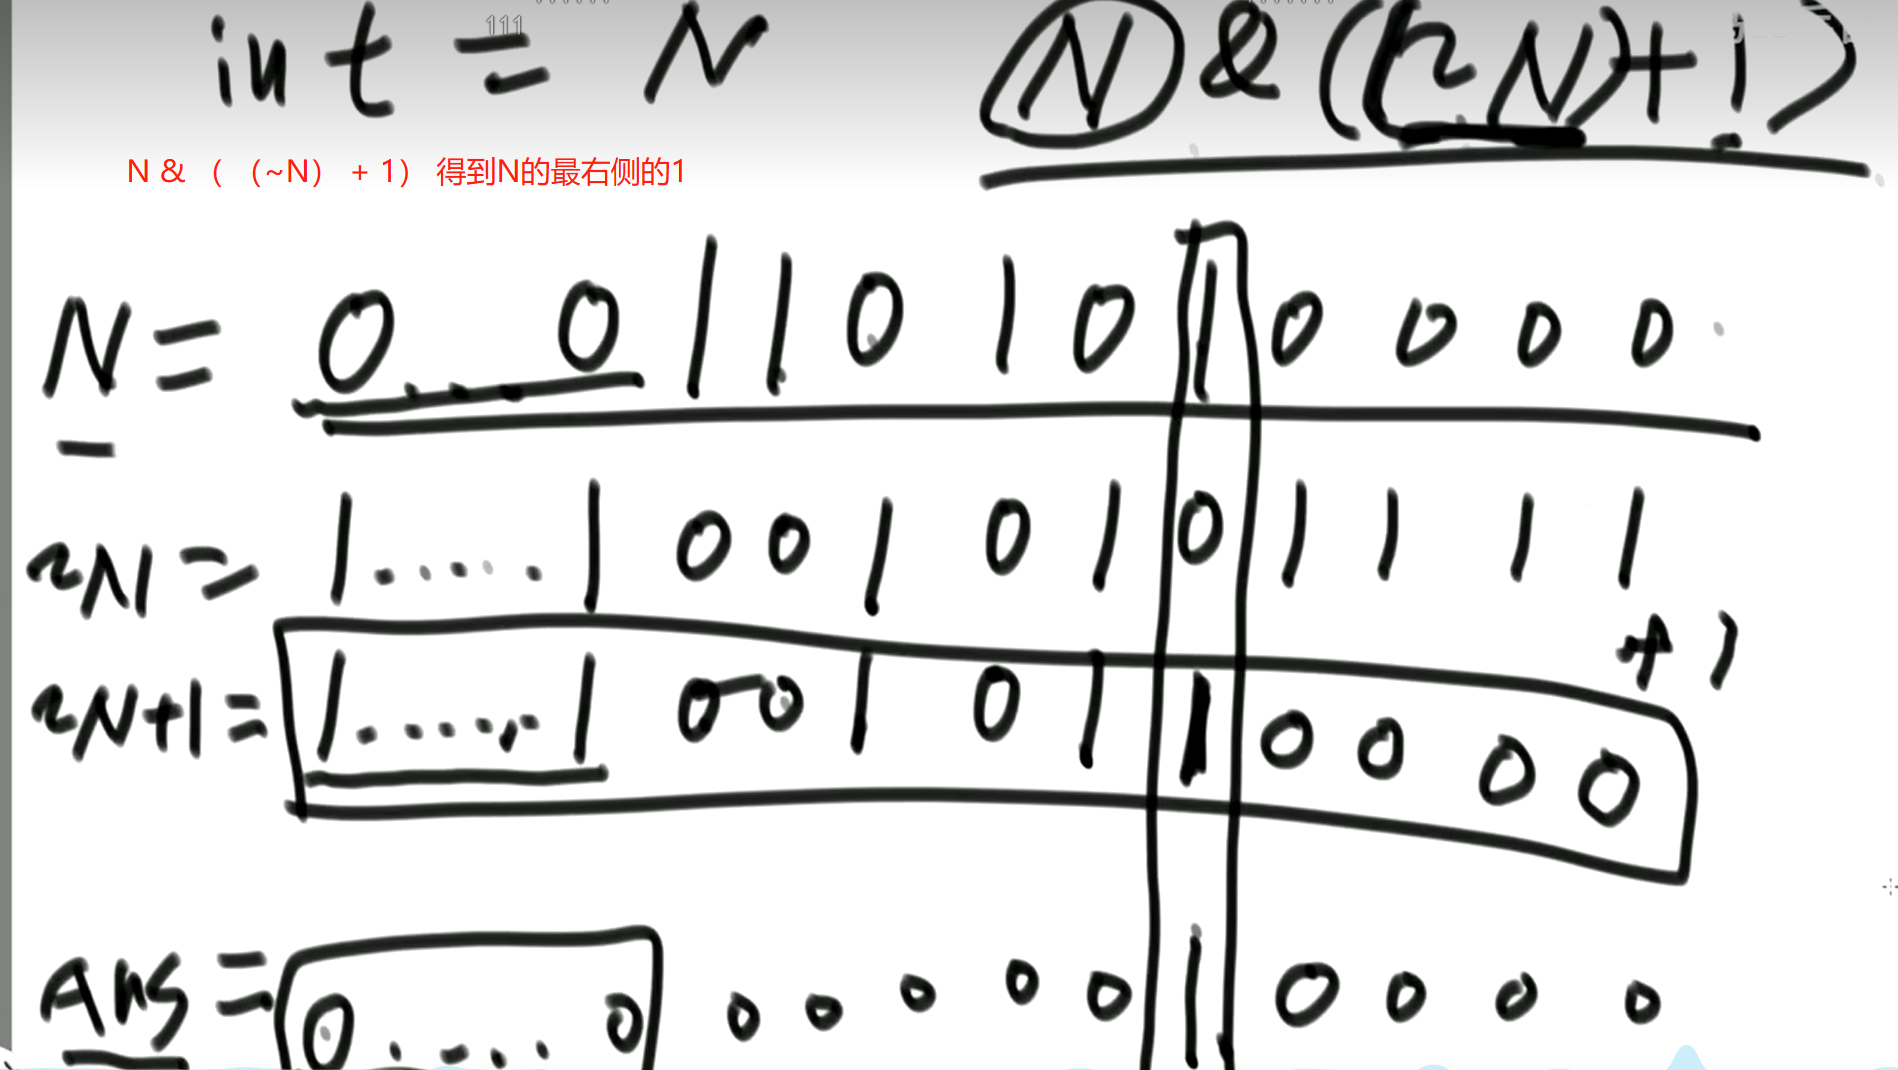 int = N N & ((~N)+1)
N & （ （~N） + 1） 得到N的最右侧的1
N = 0....0 1 1 0 1 0 1 0 0 0 0
~N = 1.....1 0 0 1 0 1 0 1 1 1 1
+1
~N+1 = 1......1 0 0 1 0 1 1 0 0 0 0
Ans = 0....0 0 0 0 0 0 1 0 0 0 0